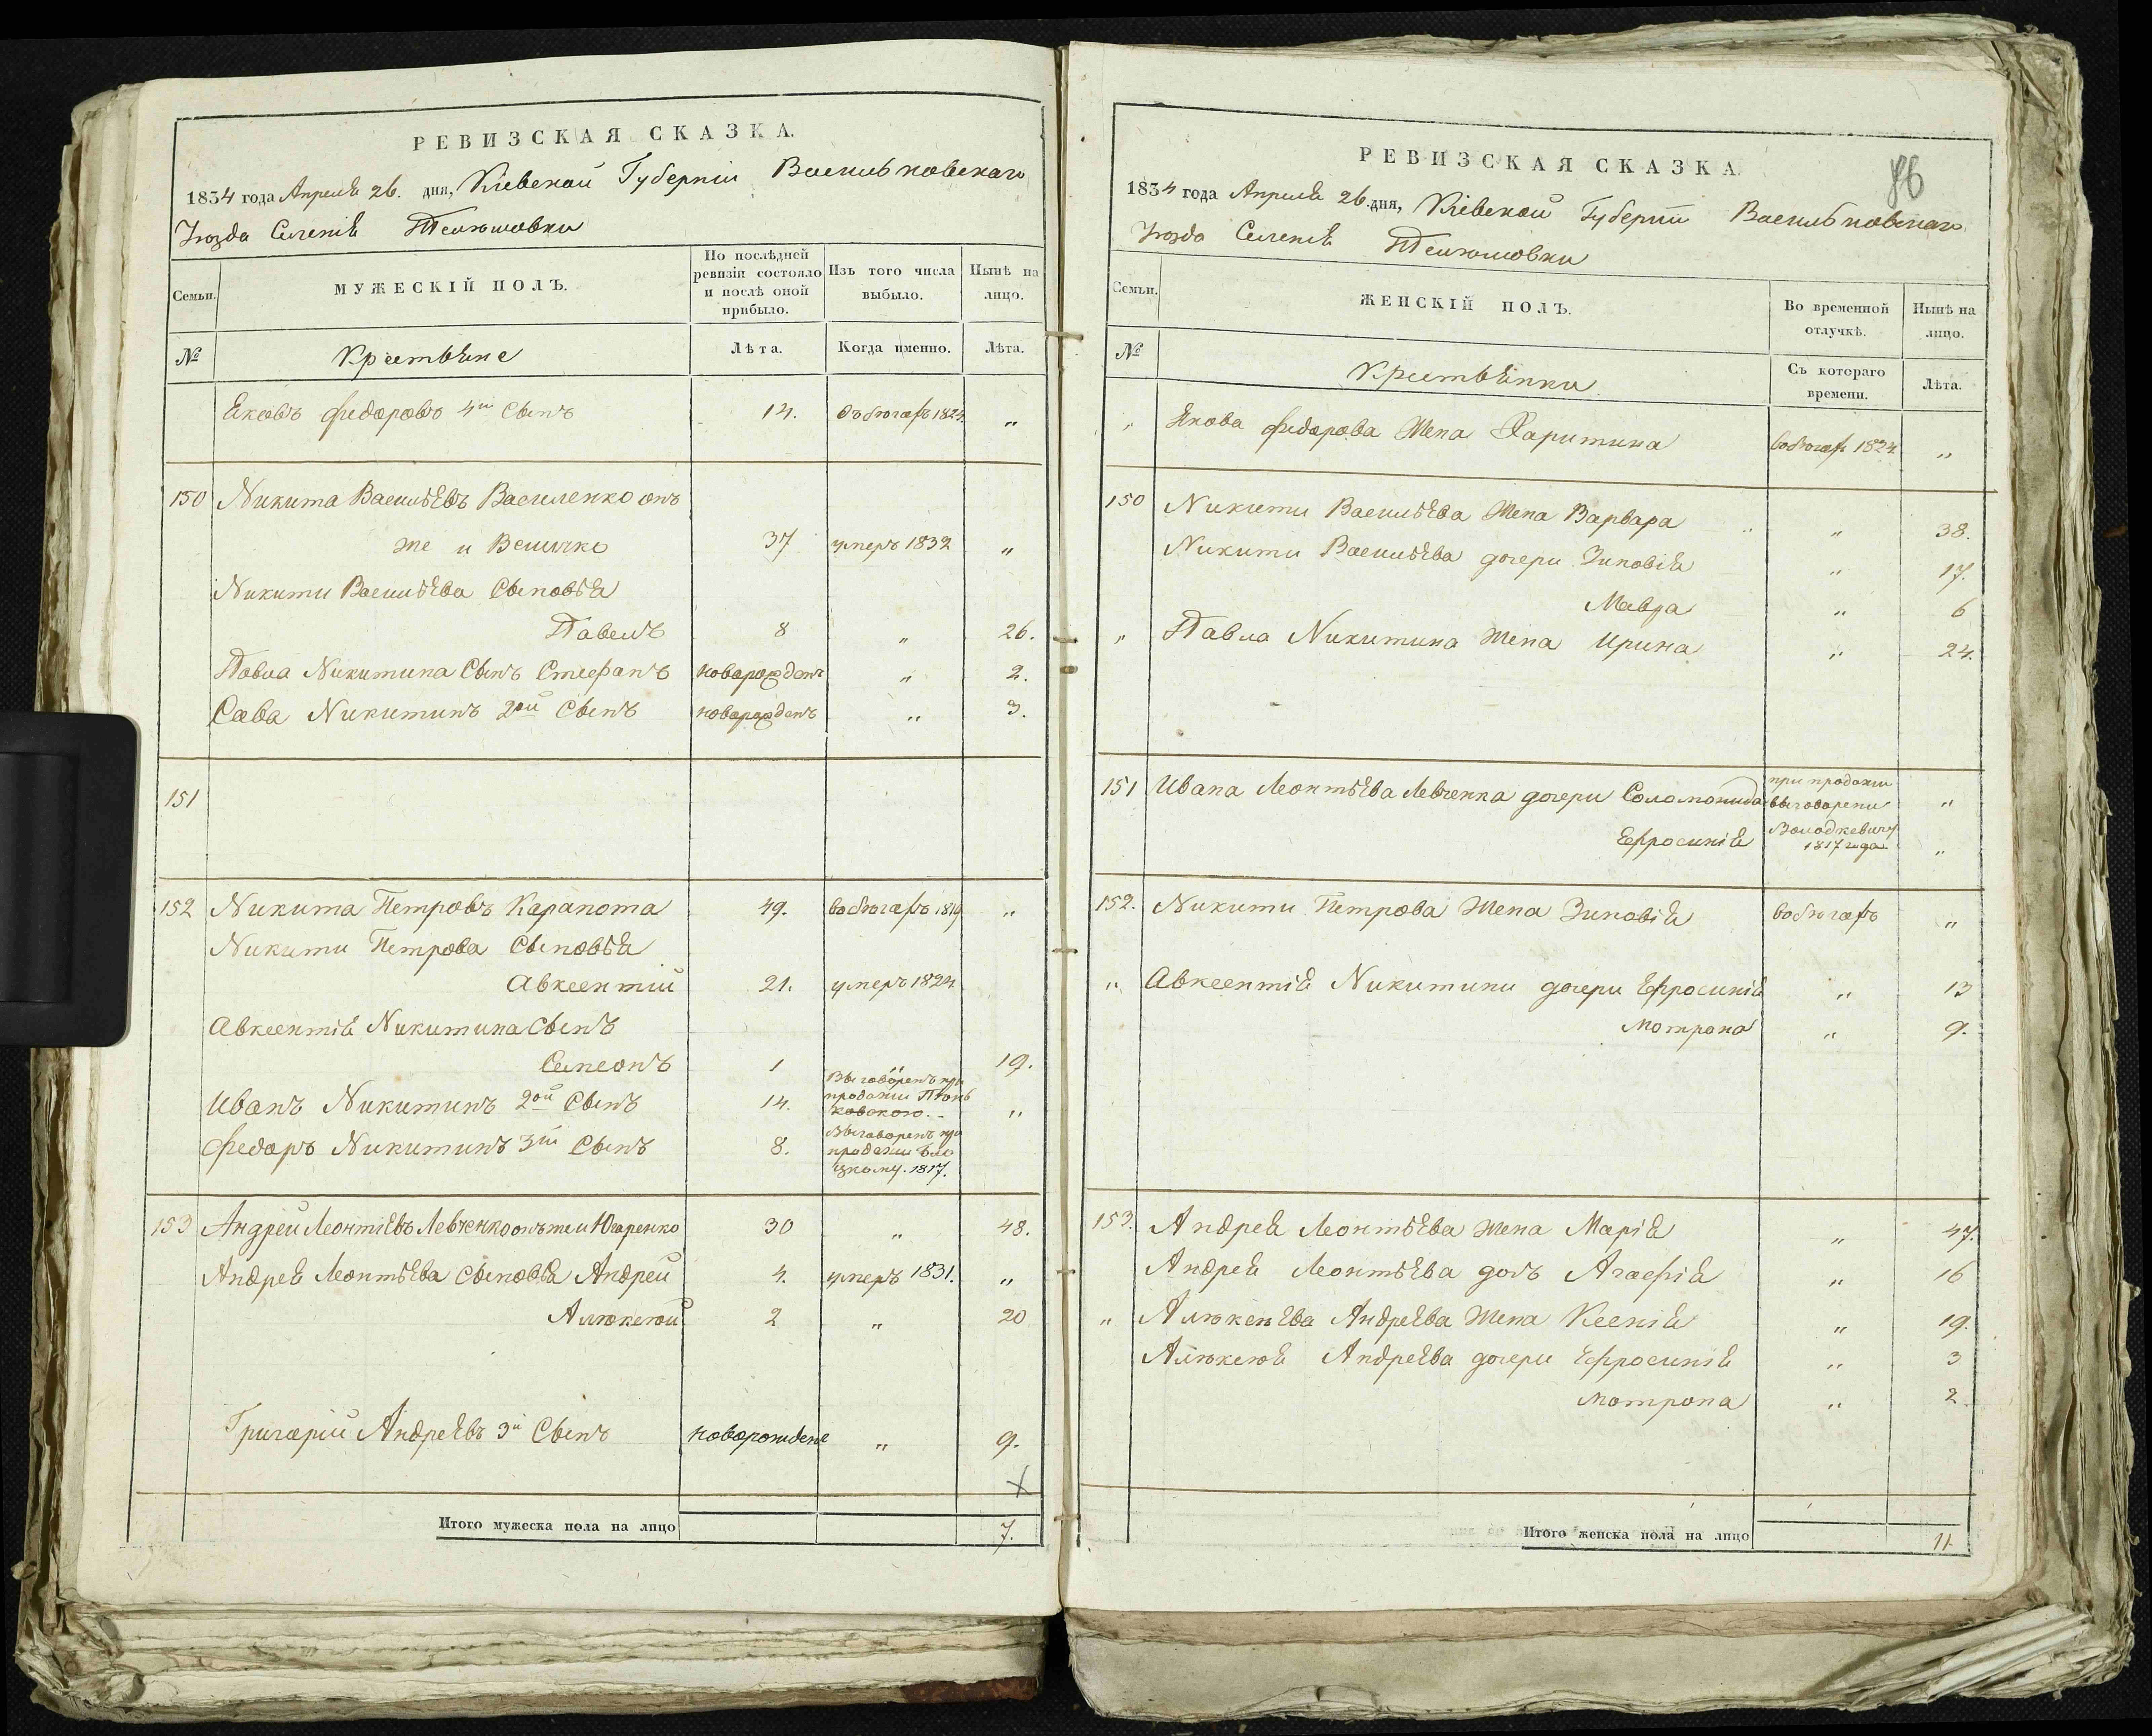 РЕВИЗСКАЯ СКАЗКА.
1834 года Апреля 26. дня, Кіевской Губерніи Васильковскаго
Уѣзда Селенія
Семьи.
МУЖЕСКІЙ ПОЛЪ.
По послѣдней ревизіи состояло и послѣ оной прибыло.
Изъ того числа выбыло.
Нынѣ на лицо.
№
Крестьяне
Лѣта.
Когда именно.
Лѣта.
Яковъ Федоровъ 4й Сынъ 14. 1824 „
150 Никита Васильевъ Василенко онъ
же и Величко 37 умеръ 1832 „
Никити Васильева Сыновья
Павелъ 8 „ 26.
Павла Никитина Сынъ Стефанъ новорожденъ „ 2.
Сава Никитинъ 2ой Сынъ новорожденъ „ 3.
151
152 Никита Петровъ Карапота 49. въ бѣгахъ 1819 „
Никити Петрова Сыновья
Авксентій 21. умеръ 1824
Авксентія Никитина Сынъ
Симеонъ 1 „ 19.
Иванъ Никитинъ 2ой Сынъ 14. Выговоренъ при продажи „
Федоръ Никитинъ 3ій Сынъ 8. Выговоренъ при продажи 1817.
153 Андрей Леонтіевъ Левченко онъ же и 30 „ 48.
Андрея Леонтьева Сыновья Андрей 4. умеръ 1831. „
Алѣксѣй 2 „ 20
Григорій Андреевъ 3й Сынъ новорожденъ „ 9.
Итого мужеска пола на лицо 7.
РЕВИЗСКАЯ СКАЗКА.
86
1834 года Апреля 26. дня, Кіевской Губерніи Васильковскаго
Уѣзда Селенія
Семьи.
ЖЕНСКІЙ ПОЛЪ.
Во временной отлучкѣ.
Нынѣ на лицо.
№
Крестьянки
Съ котораго времени.
Лѣта.
„ Якова Федорова Жена Харитина въ бѣгах 1824 „
150 Никити Васильева Жена Варвара „ 38.
Никити Васильева дочери Зиновія „ 17.
Мавра „ 6
„ Павла Никитина Жена Ирина „ 24.
151 Ивана Леонтьева Левченка дочери Соломонида при продажи выговорени „
Ефросинія 1817 года „
152. Никити Петрова Жена Зиновія въ бѣгахъ „
„ Авксентія Никитини дочери Ефросинія „ 13
Мотрона „ 9.
153. Андрея Леонтьева жена Марія „ 47.
Андрея Леонтьева дочь Агафія „ 16
„ Андреева Жена Ксенія „ 19.
Алѣксѣя Андреева дочери Ефросинія „ 3
Мотрона „ 2.
Итого женска пола на лицо 11.